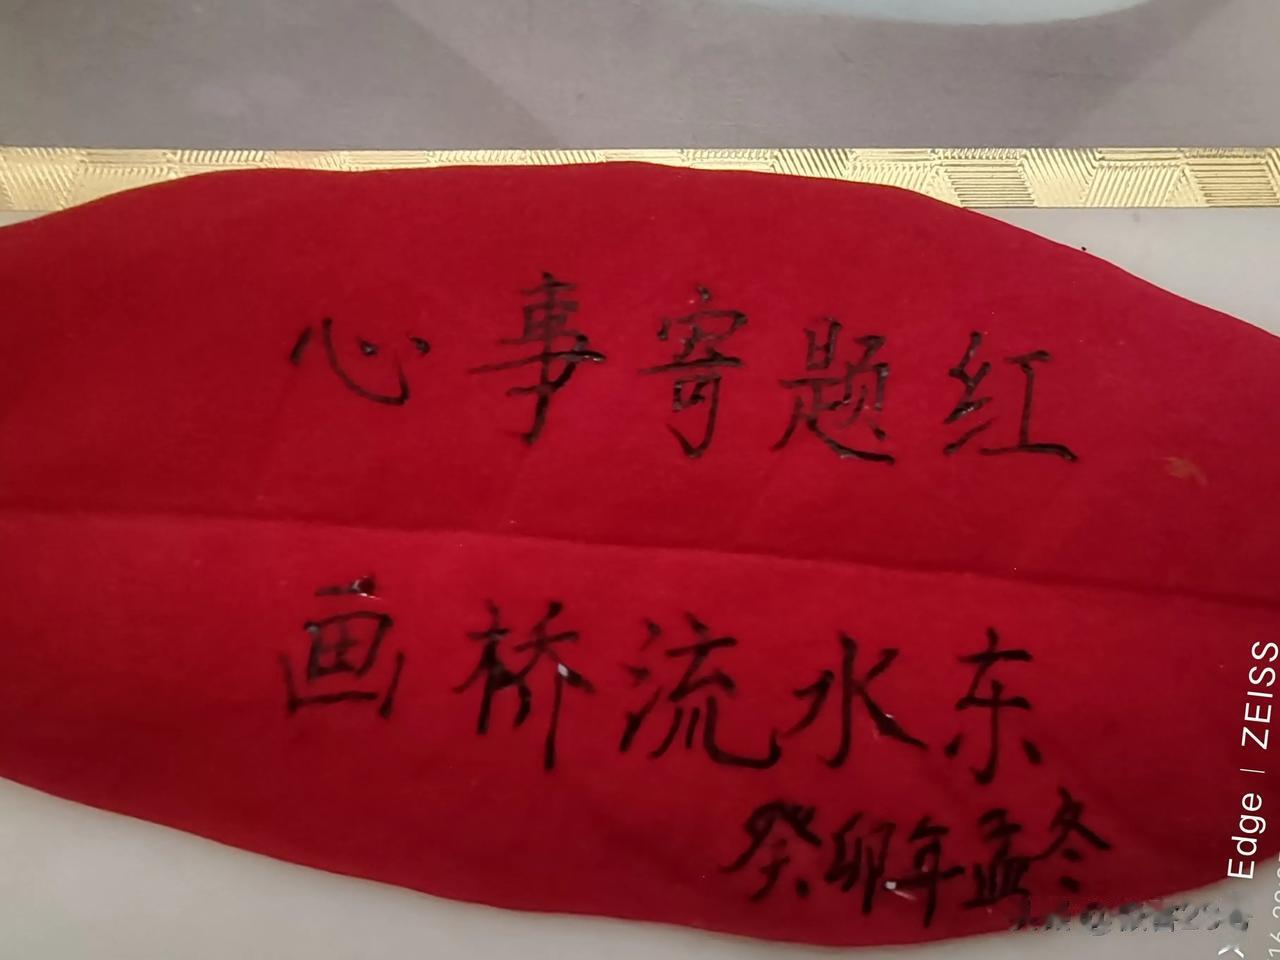 心事寄题红
画桥流水东
癸卯年孟冬
Edge | ZEISS